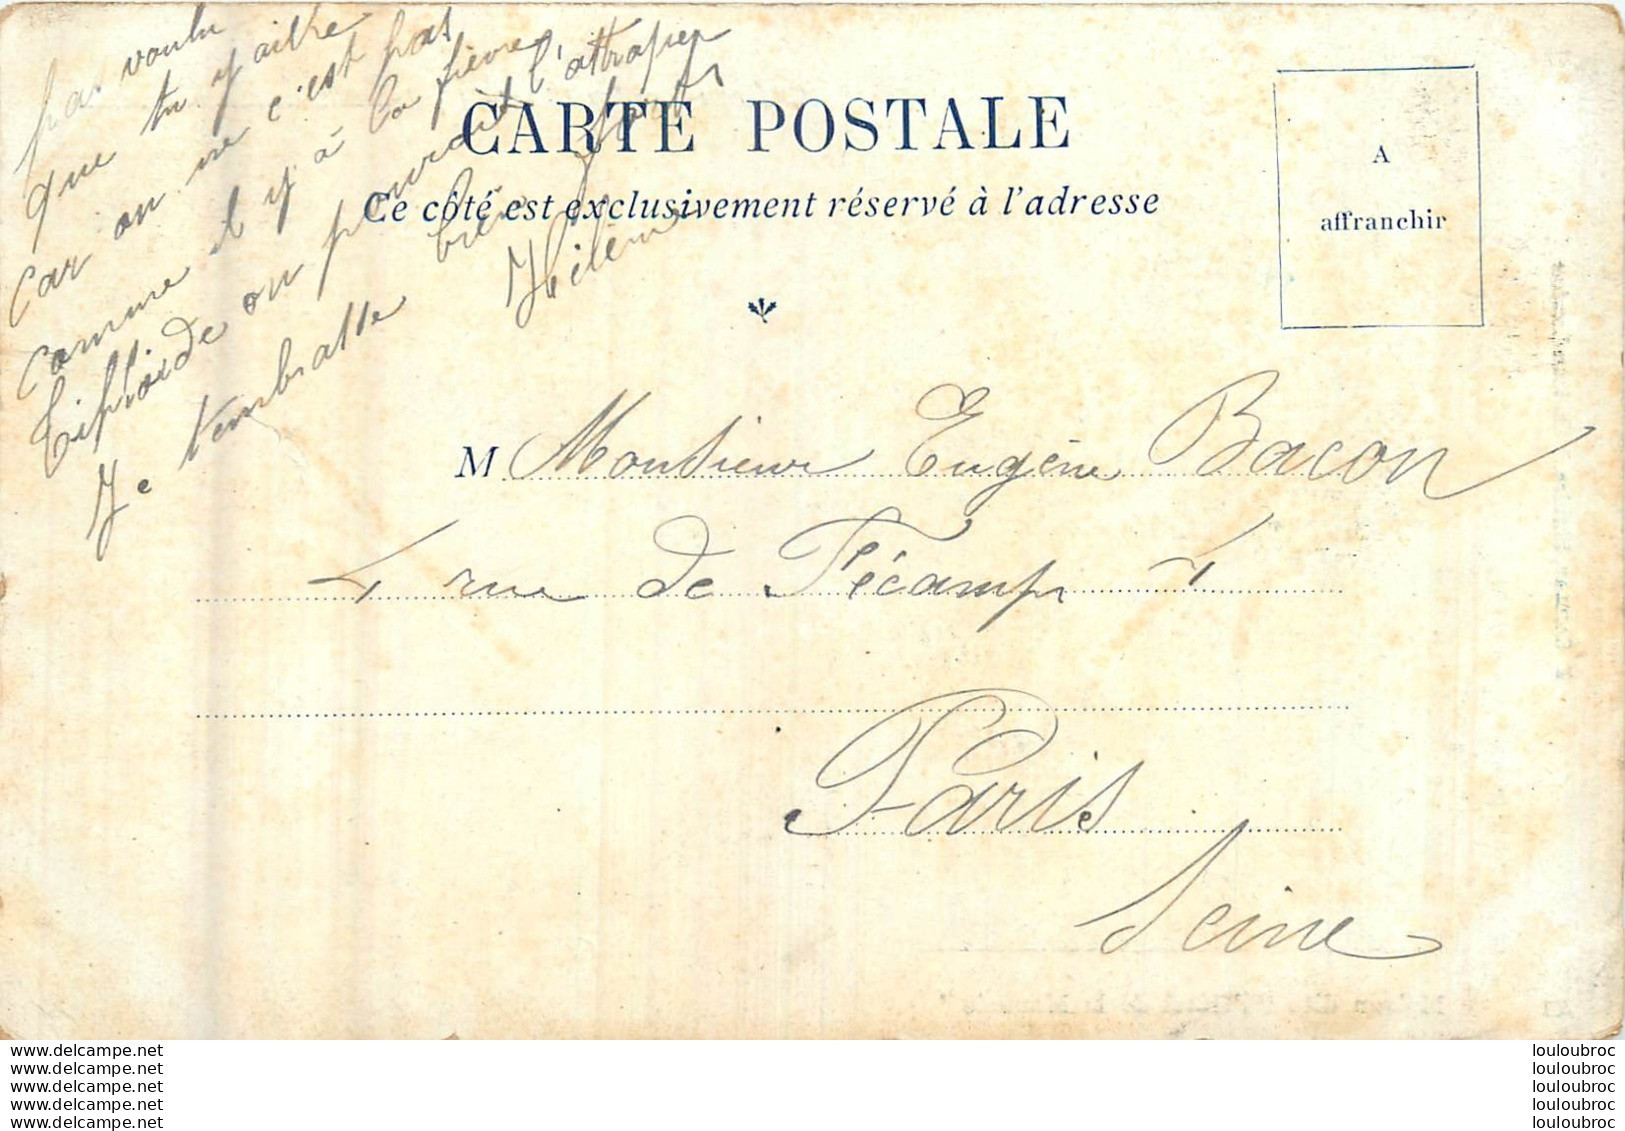 pas voulu
que tu y ailre
car on ne c'est pas
comme il y à la fièvre
tiploide on pourait l'attraper
Je tembrasse bien fort
Hélène
CARTE POSTALE
Ce côté est exclusivement réservé à l'adresse
A
affranchir
M Monsieur Eugène Bacon
4 rue de Fécamp 4
Paris
Seine
www.delcampe.net
www.delcampe.net
www.delcampe.net
www.delcampe.net
www.delcampe.net
louloubroc
louloubroc
louloubroc
louloubroc
louloubroc